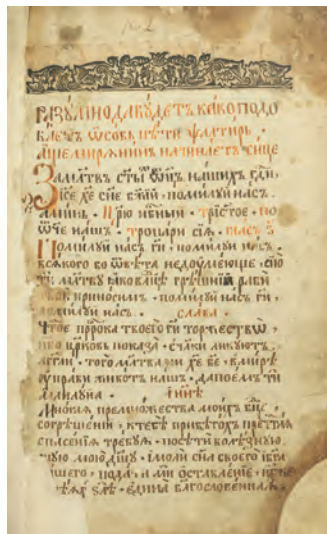 № 2
Разꙋмно да бꙋдетъ како подо
баетъ ѡсобь пѣти ѱалтирь ,
аще мирѧнинъ начинаетъ сице
За млⷭ҇твъ ст҃ыⷯ ѿц҃ъ нашихъ гдⷭ҇и,
і҆с҃е хе҃ сн҃е бж҃їй · помилꙋй насъ .
аминь · Цр҃ю нб҃ный · трист҃ое · по
ѿч҃е нашъ · тропари сїѧ · гласъ ѕ҃
Помилꙋй насъ гдⷭ҇и · помилꙋй насъ .
всѧкого бо ѿвѣта недоꙋмѣюще · сїю
ти млт҃вꙋ ꙗко влⷣцѣ грѣшнїи раби
твои приносимъ · помилꙋй насъ гдⷭ҇и ,
помилꙋй насъ .     слава ·
Чⷭ҇тое прⷪ҇рока твоего гдⷭ҇и торжество ,
нб҃о црк҃овь показа · съ чл҃ки ликꙋютъ
агг҃ли · того млт҃вами хе҃ бж҃е · в мирѣ
ꙋправи животъ нашъ · да поемъ ти
алилꙋиа ·     и нн҃ѣ
Многаѧ премножества моихъ бц҃е
согрѣшенїи , к тебѣ прибѣгохъ прⷱ҇таѧ
спасенїѧ требꙋѧ · посѣти болѣзнꙋю
щꙋю мою дш҃ꙋ · и моли сн҃а своего и бг҃а
нашего · подати ми оставленїе · ꙗже
ѕлѣ · едина благословеннаѧ .